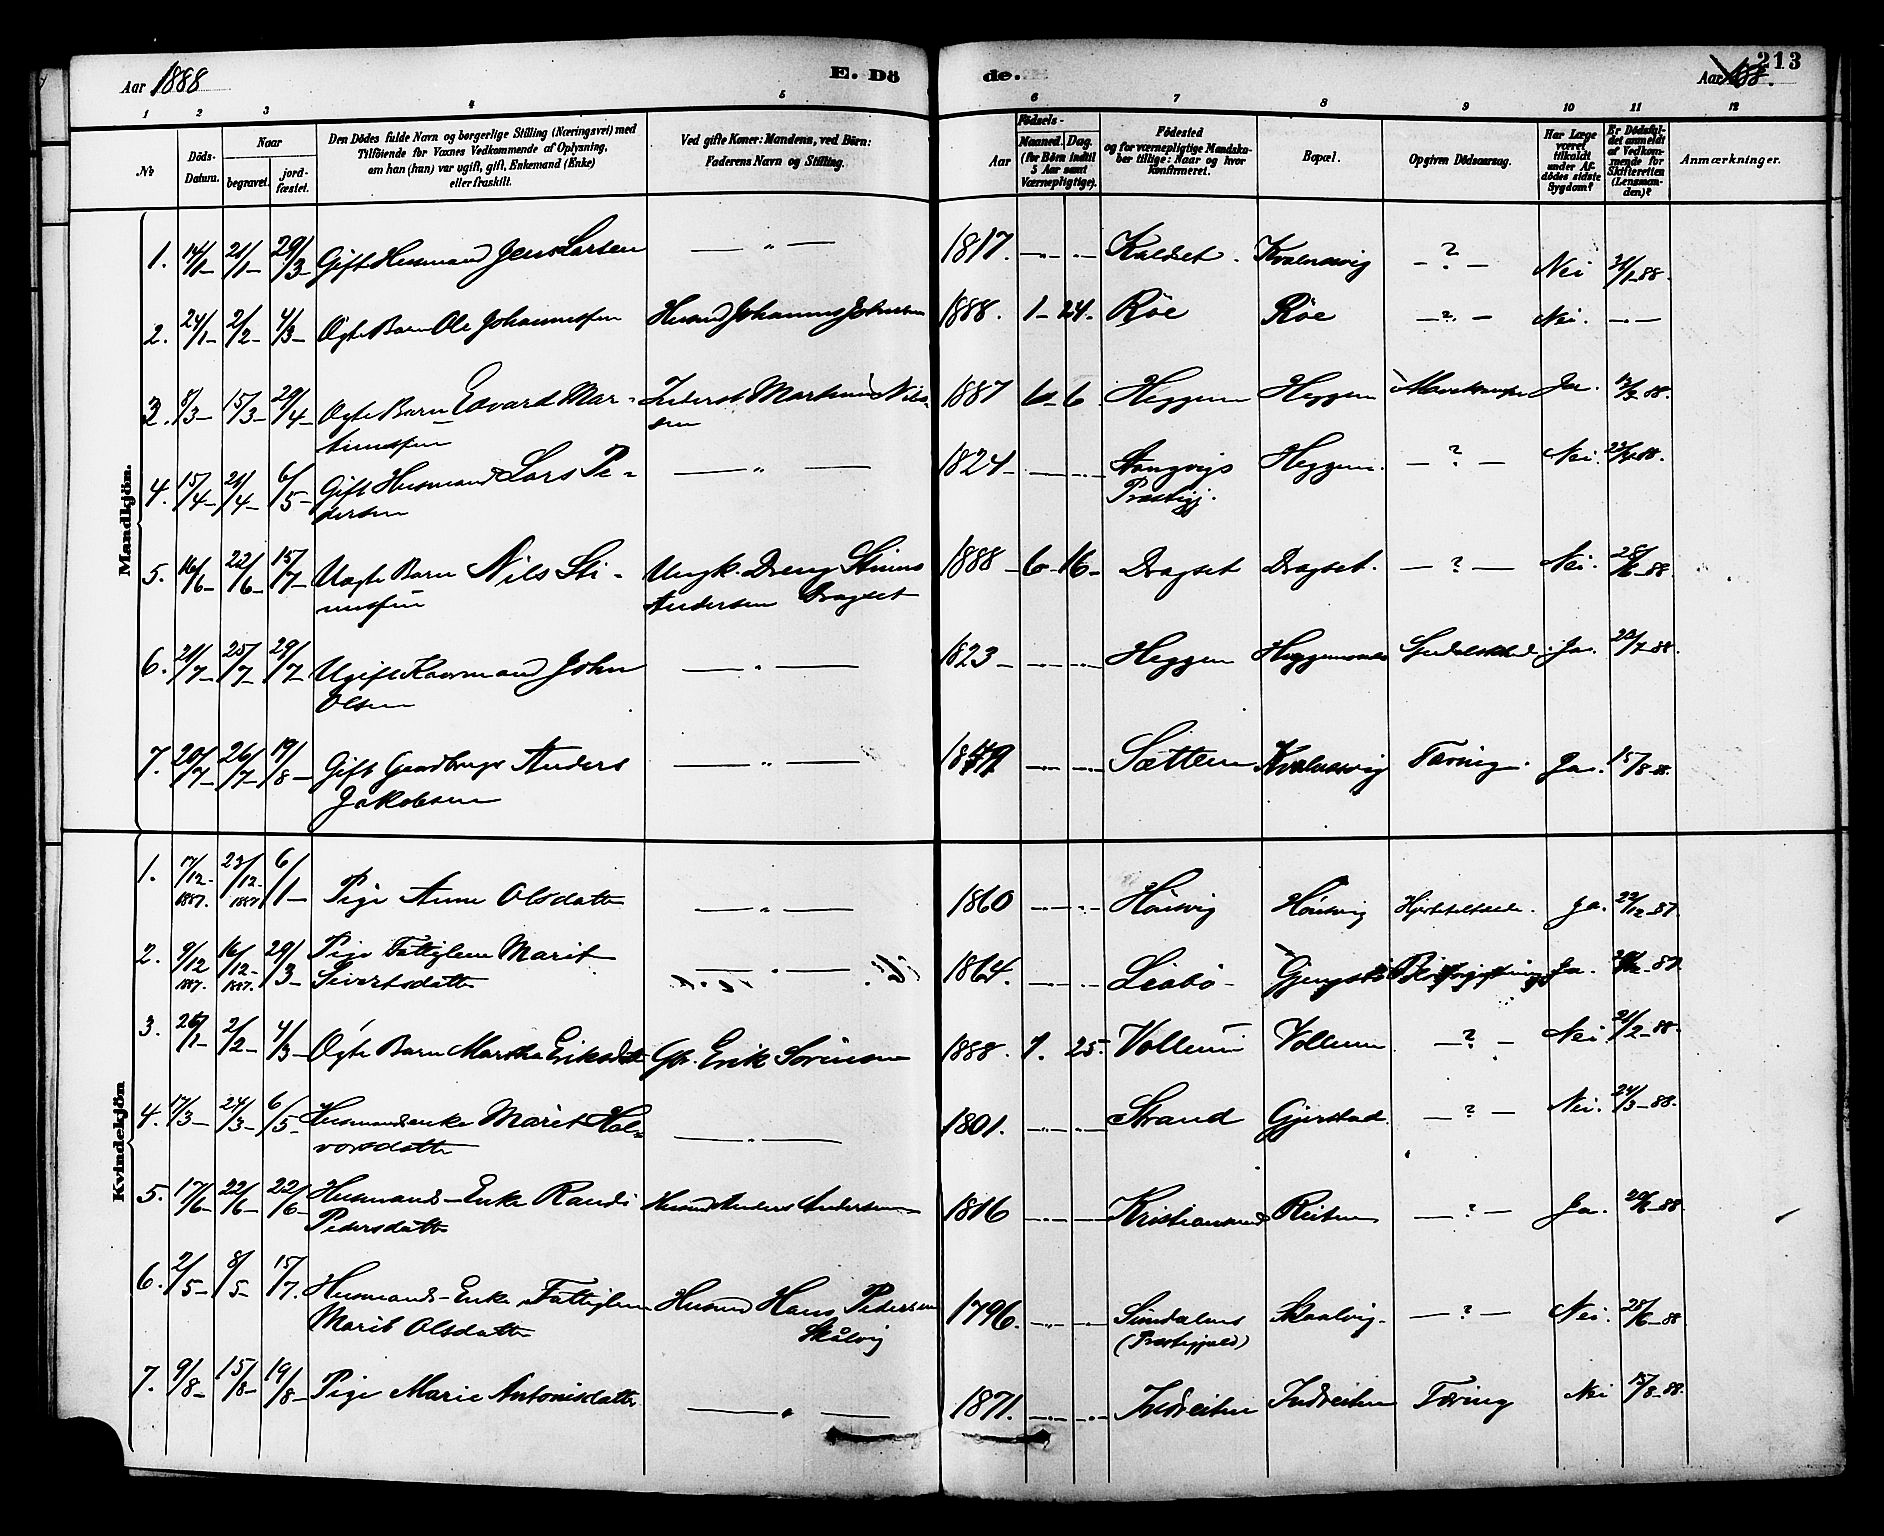 Aar 1888
E. Dö
de.
213
Aar 188
1 2 3 4 5 6 7 8 9 10 11 12
№
Döds-Datum.
Naar
begravet.
jord-fæstet.
Den Dödes fulde Navn og borgerlige Stilling (Næringsvei) med
Tilföiende for Voxnes Vedkommende af Oplysning,
om han (hun) var ugift, gift, Enkemand (Enke)
eller fraskilt.
Ved gifte Koner: Mandens, ved Börn:
Faderens Navn og Stilling.
Födsels-
Aar
Maaned. Dag.
(for Börn indtil
5 Aar samt
Værnepligtige).
Födested
og for værnepligtige Mandska-
ber tillige: Naar og hvor
konfirmeret.
Bopæl.
Opgiven Dödsaarsag.
Har Læge
været
tilkaldt
under Af-
dödes sidste
Sygdom?
Er Dödsfal-
det anmeldt
af Vedkom-
mende for
Skifteretten
(Lensman-
den)?
Anmærkninger.
Mandkjön.
1. 14/1- 21/1- 29/3- Gift Husmand Jens Larsen — " — 1817. Kaldset. Kvalnesvig - ? - Nei 21/1 88.
2. 24/1- 2/2- 4/3- Ægte Barn Ole Johannessen Husmd Johannes Johnsen 1888. 1- 24- Röe Röe - ? - Nei. - -
3. 8/3- 15/3- 29/4- Ogte Barn Edvard Mar-
tinussen
Martinus Nils-
sen
1887 6 6 Heggem Heggem Ja. 88.
4. 15/4- 21/4- 6/5- Gift Husmand Lars Pe-
dersen
— " — 1824- Stangvigs
Præstegj.
Heggem. - ? - Nei. 88.
5. 16/6- 22/6- 15/7- Uægte Barn Nils Sti-
nussen
Ungk. Dreng Stinus
Andersen Dragset
1888- 6- 16- Dragset Dragset. - ? - Nei. 28/6- 88
6. 21/7- 25/7- 29/7- Ugift John
Olsen
— " — 1823- Heggem Ja. 23/7- 88
7. 20/7- 26/7- 19/8- Gift Gaardbruger Anders
Jakobsen
— " — Sættem Kvalnesvig Tæring. Ja. 15/8- 88.
Kvindekjön
1. 17/12- 1887. 23/12- 1887 6/1- Pige Anne Olsdatter — " — 1860 Hönsvig Hönsvig Ja. 22/12- 87
2. 9/12 1887. 16/12- 1887. 29/3- Pige Fattiglem Marit
Sivertsdatter
— " — 1864. Liabö- Ja. 87
3. 26/1- 2/2- 4/3- Ægte Barn Martha Eriksdtr Gbr. Erik Sörensen 1888. 1. 25. Vollum Vollum - ? - Nei 21/2- 88
4. 17/3- 24/3- 6/5- Husmandsenke Marit Hal-
vorsdatter
— " — 1801. Strand Gjerstad. - ? - Nei. 24/3- 88.
5. 17/6- 22/6- 22/6- Husmands-Enke Randi
Pedersdatter
Husmd Anders Andersen 1816 Kristiansund Reiten - ? - Ja. 20/6- 88
6. 2/5- 8/5- 15/7. Husmands-Enke Fattiglem
Marit Olsdatter
Husmd Hans Pedersen
Skålvig
1796. Sundalens
(Præstegjeld)
Skaalvig. - ? - Nei. 28/6- 88
7. 9/8- 15/8- 19/8- Pige Marie Antonisdatter — " — 1871. Indreiten Indreiten Tæring Nei 15/8- 88.